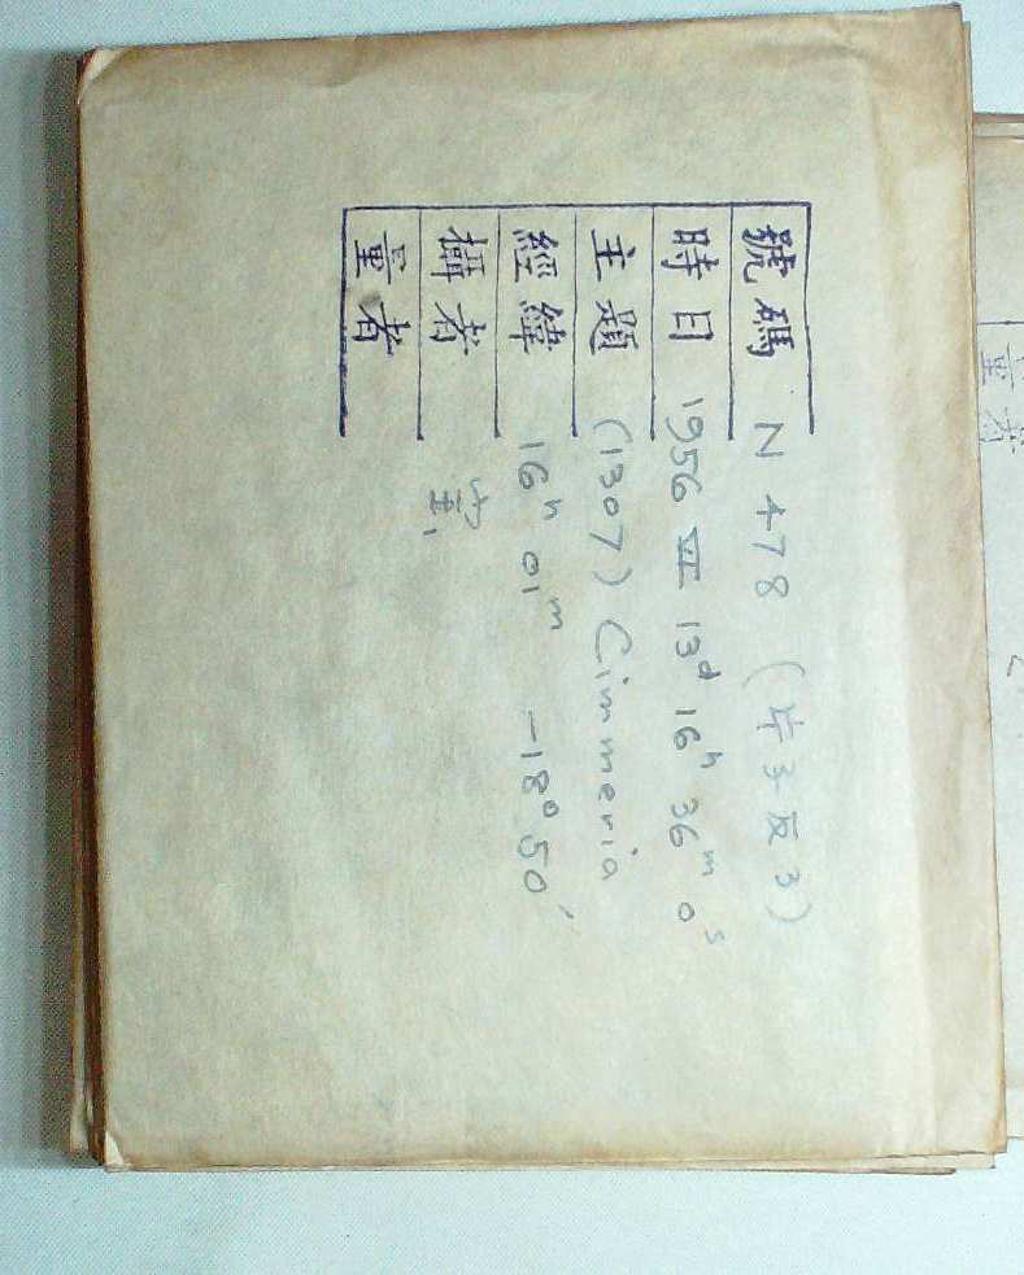 號碼 N 478 (片子反了)
時日 1956 Ⅵ 13ᵈ 16ʰ 36ᵐ 0ˢ
主題 (1307) Cimmeria
經緯 16ʰ 01ᵐ -18° 50′
攝者
量者
量者